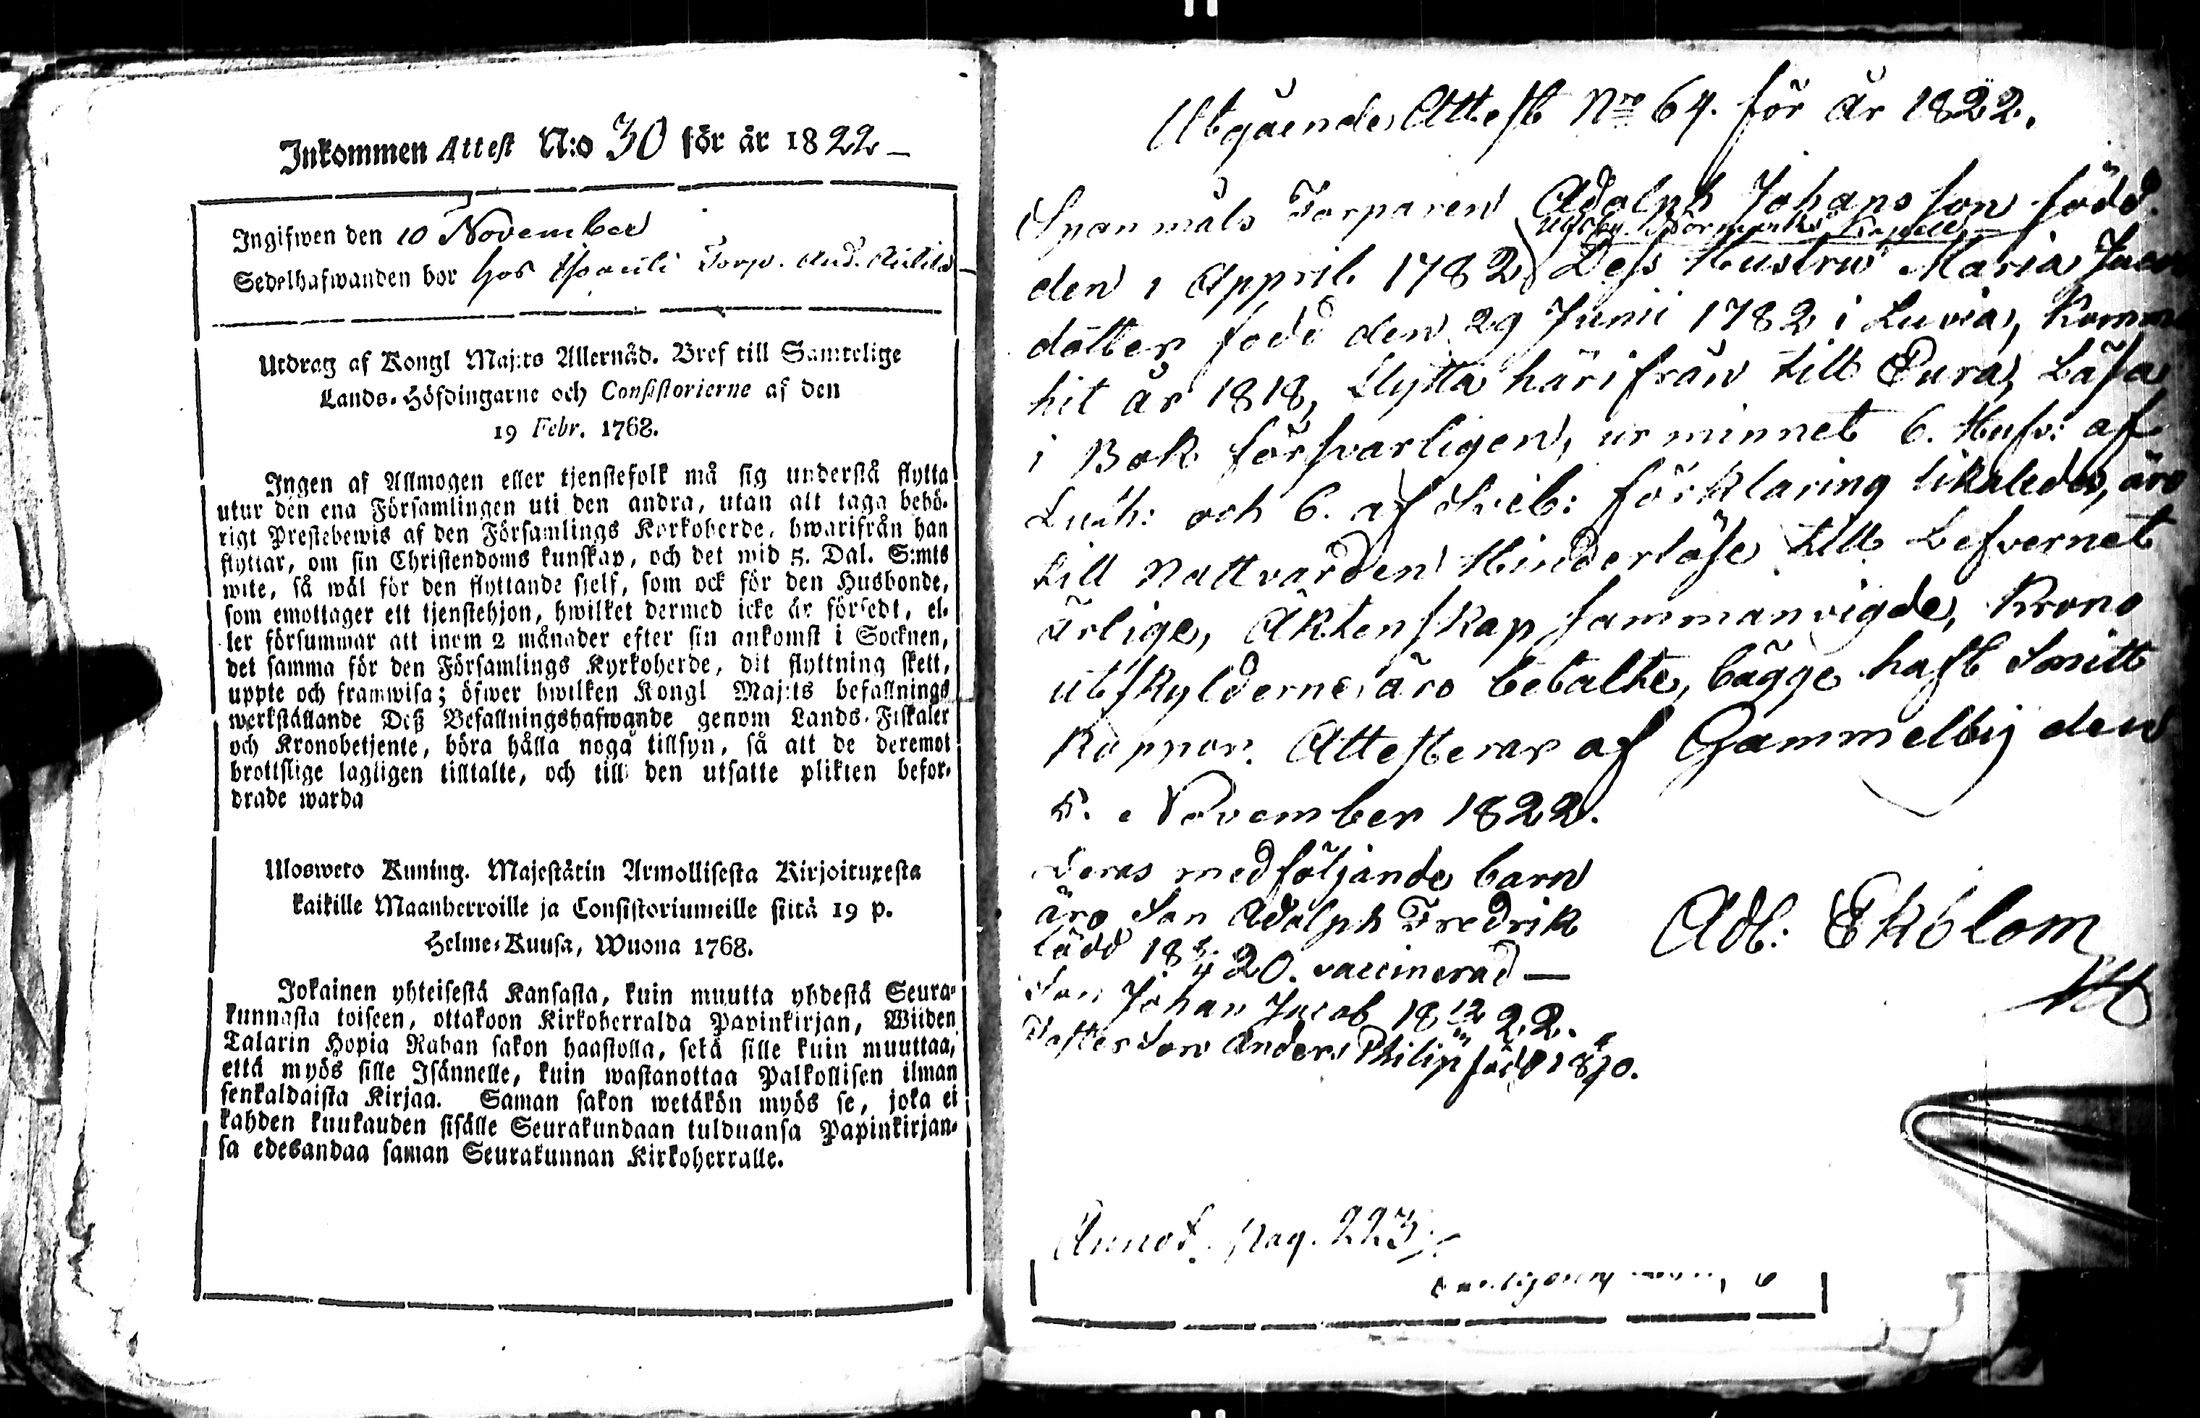 Inkommen Attest N:o 30 för år 1822
Ingifwen den 10 November
Sedelhafwanden bor hos Torp. And.
Utdrag af Kongl Maj:ts Allernåd. Bref till Samtelige
Lands-Höfdingarne och Consistorierne af den
19 Febr. 1768.
Ingen af Allmogen eller tjenstefolk må sig understå flytta
utur den ena Församlingen uti den andra, utan att taga behö-
rigt Prestebewis af den Församlings Kyrkoherde, hwarifrån han
flyttar, om sin Christendoms kunskap, och det wid 5. Dal. S:mts
wite, så wäl för den flyttande sjelf, som ock för den Husbonde,
som emottager ett tjenstehjon, hwilket dermed icke är försedt, el-
ler försummar att inom 2 månader efter sin ankomst i Socknen,
det samma för den Församlings Kyrkoherde, dit flyttning skett,
uppte och framwisa; öfwer hwilken Kongl Maj:ts befallnings
werkställande Deß Befallningshafwande genom Lands-Fiskaler
och Kronobetjente, böra hålla noga tillsyn, så att de deremot
brottslige lagligen tilltalte, och till den utsatte plikten befor-
drade warda
Ulosweto Kuning. Majestätin Armollisesta Kirjoituxesta
kaikille Maanherroille ja Consistoriumeille siitä 19 p.
Helme-Kuusa, Wuona 1768.
Jokainen yhteisestä Kansasta, kuin muutta yhdestä Seura-
kunnasta toiseen, ottakoon Kirkoherralda Papinkirjan, Wiiden
Talarin Hopia Rahan sakon haastolla, sekä sille kuin muuttaa,
että myös sille Isännelle, kuin wastanottaa Palkollisen ilman
senkaldaista Kirjaa. Saman sakon wetäkön myös se, joka ei
kahden kuukauden sisälle Seurakundaan tulduansa Papinkirjan-
sa edesandaa saman Seurakunnan Kirkoherralle.
Utgående Attest No 64. för år 1822.
Spanmåls Torparen Adolph Johansson född
Kapell
den 1 Appril 1782 Dess Hustru Maria
dotter född den 29 Junii 1782 i Luvia,
hit år 1818, flytta härifrån till Eura, Läsa
i Bok försvarligen, ur minnet 6. Hufv: af
Luth: och 6. af Sveb: förklaring likaledes, äro
till Nattvarden Hinderlöse till Lefvernet
ärlige, Äktenskap sammanvigde, Krono
utskylderne äro betalte, bägge haft Smitt
Koppor. Attesterar af Gammelby den
5. November 1822.
Deras medföljande barn
äro Son Adolph Fredrik
född 18 20. vaccinerad
Son Johan Jacob 18 22.
Foster Son Anders Philip född
Adl: Ekblom
Annot. pag. 223